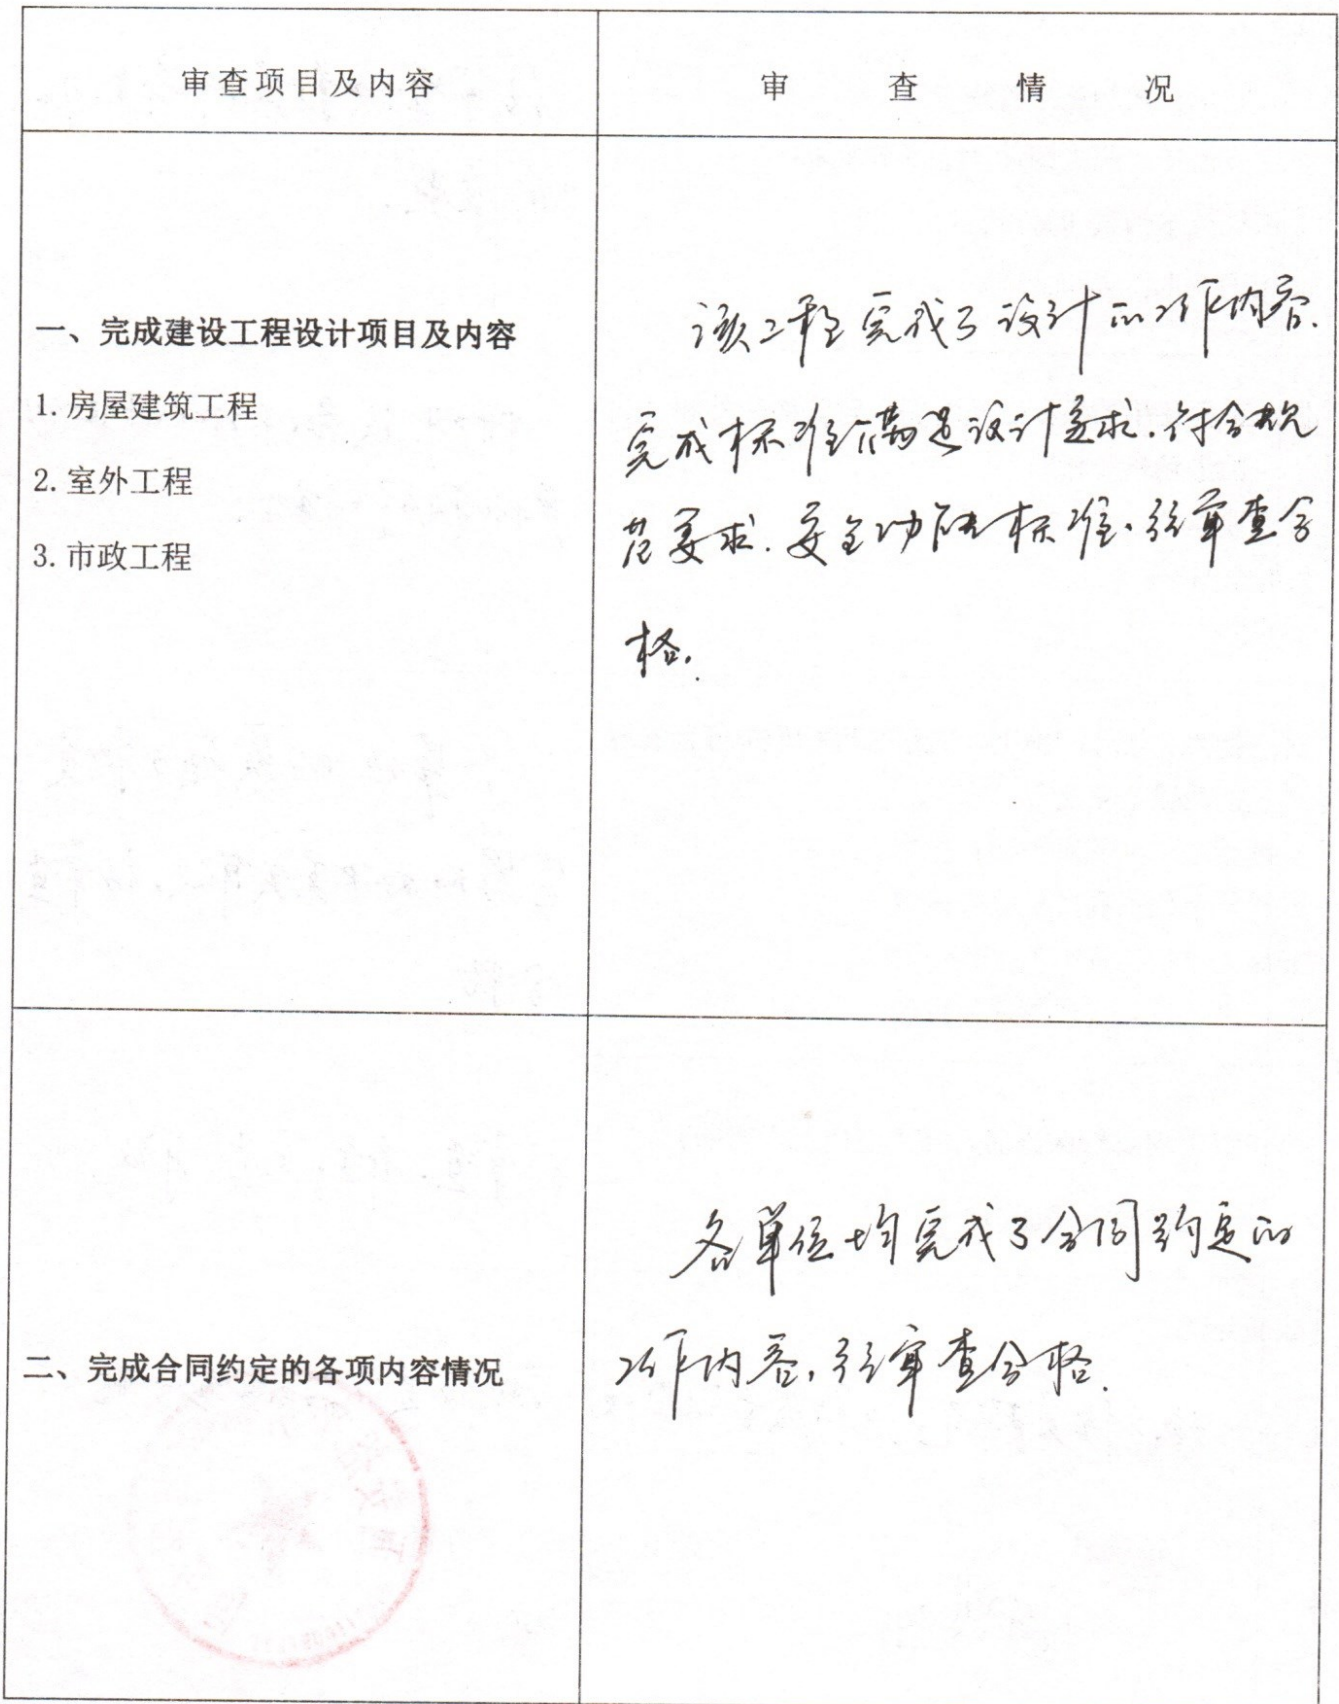 审查项目及内容
审查情况
一、完成建设工程设计项目及内容
1. 房屋建筑工程
2. 室外工程
3. 市政工程
该工程完成了设计的工作内容.
完成标准满足设计要求.符合规
范要求.安全功能标准.经审查合
格.
二、完成合同约定的各项内容情况
各单位均完成了合同约定的
工作内容,经审查合格.